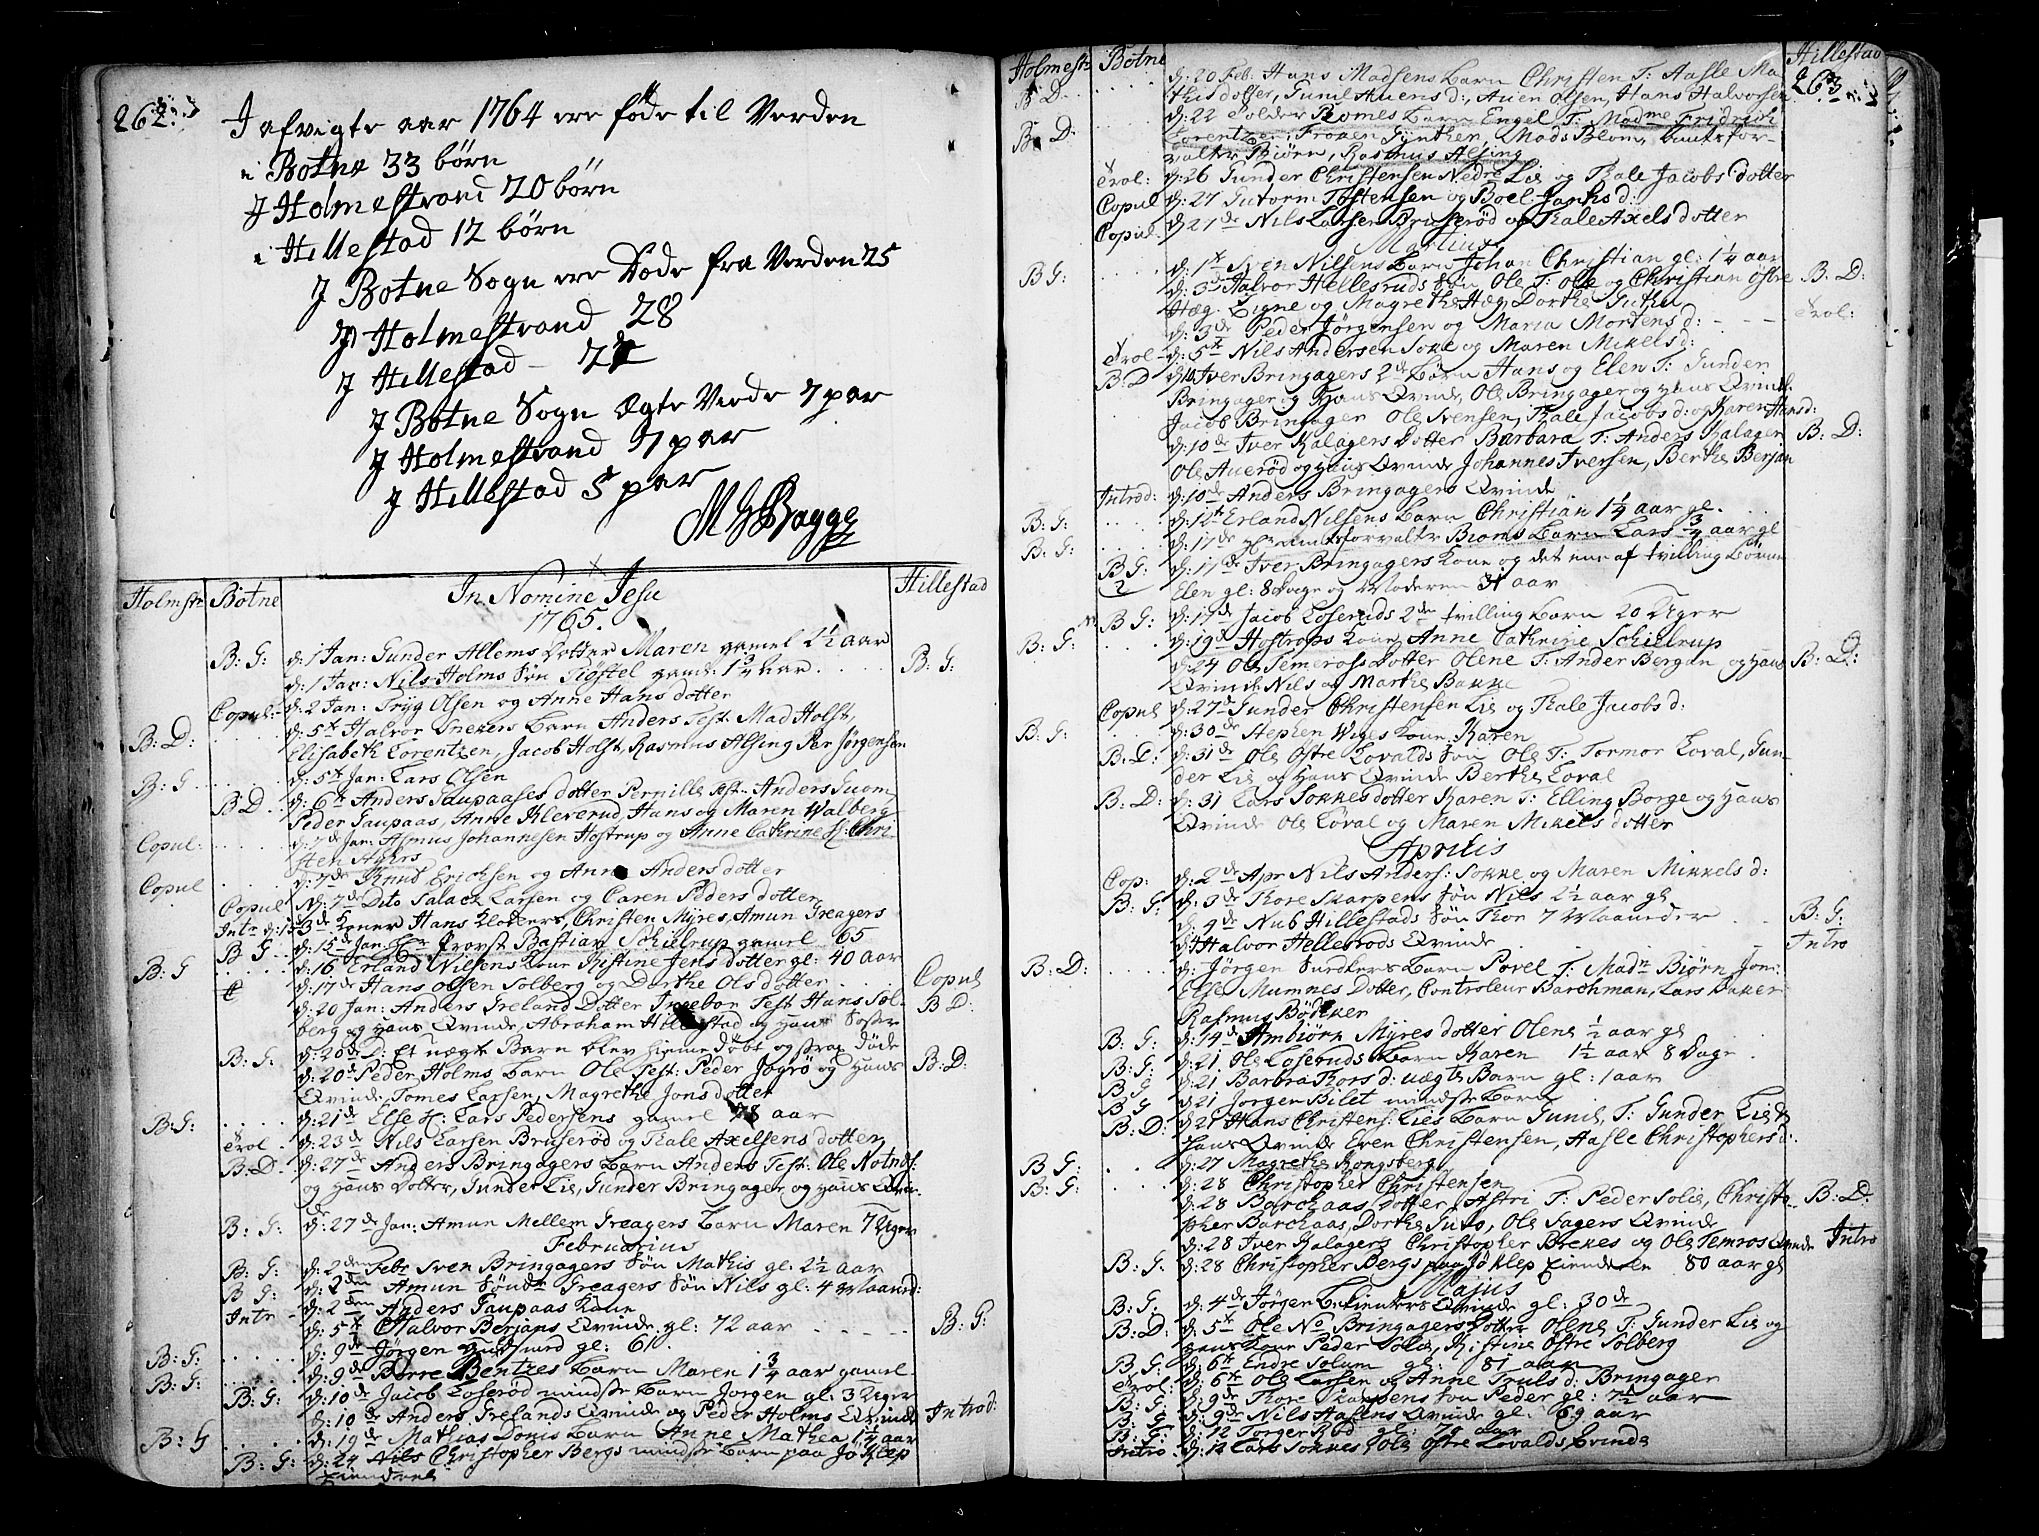 262.
I afvigte aar 1764 ere føde til Verden
i Botne 33 børn
J Holmestrand 20 børn
i Hillestad 12 børn
J Botne Sogn ere Døde fra Verden 25
J Holmestrand 28
J Hillestad -
J Botne Sogn Ægte Viede 7 par
J Holmestrand 7 par
J Hillestad 5 par
M G Bagge
Holmstr Botne Hillestad
In Nomine Jesu
1765.
B: G: d: 1 Jan: Gunder Allems Dotter Maren gamel 2½ aar
d: 1 Jan: Nils Holms Søn Giøstel gaml: 1¾ aar. B: G:
Copul: d: 2 Jan: Tryg Olsen og Anne Hans dotter
B: D: d: 5te Halvor Snekers Barn Anders Test: Mad Holst,
Elisabeth Lorentzen, Jacob Holst, Rasmus Alsing Per Jørgensen
B: G d: 5te Jan: Lars Olsen
B D: d: 6te Anders Gaupaases dotter Pernille Test: Anders Guom
Peder Gaupaas, Anne Kleverud, Hans og Maren Walberg
Copul: d: 7de Jan: Asmus Johannesen Hostrup og Anne Cathrine H: Chri-
sten Ayers
Copul d: 7de Knud Erichsen og Anne Anders dotter
Copul d: 7de Dito Salack Larsen og Caren Peders dotter
Intr d: 13de Koner Hans Klokkers, Christen Myres, Amun Greagers
B G d: 15de Jan: Hr Provst Bastian Schielrup gamel 65
B: G d: 16 Erland Nilsens Kone Kistine Jens dotter gl: 40 aar
d: 17de Hans Olsen Solberg og Dorthe Ols dotter Copul
d: 20 Jan: Anders Ireland Dotter Ingebor Test Hans Sol- B D:
berg og Hans Qvinde, Abraham Hillestad og Hans Søster
B: G: d: 20de D: Et uægte Barn blev hieme døbt og strax døde
d: 20de Peder Holms Barn Ole Test: Peder Jøgrø og Hans B: D:
Qvinde, Tomes Larsen, Magrethe Jons dotter
B: G: d: 21de Else H: Lars Pedersens gamel 78 aar
Trol d: 23de Nils Larsen Bruserød og Kale Axelsens dotter
B: D d: 27de Anders Bringagers Barn Anders Test: Ole Notnes:
og Hans Dotter, Gunder Lie, Gunder Bringager og Hans Qvin.
B: G: d: 27de Jan: Amun Mellem Greagers Barn Maren 7 Uger
Februarius
B: G: d: 2den Febr Sven Bringagers Søn Mathis gl: 2½ aar
B G: d: 2den Amun Søndre Greagers Søn Nils gl: 4 Maaned:
Intr d: 2den Anders Gaupaas Kone
d: 5te Halvor Berjans Qvinde gl: 72 aar B: G:
B: G: d: 9de Jørgen gl: 61
B: G: d: 9de Børre Bentzes Barn Maren 1¾ aar gamel
B: G: d: 10de Jacob Loserød mindste Barn Jørgen gl: 3 Uger
d: 10de Anders Grelands Qvinde og Peder Holms Qvinde Introd:
B: G d: 19de Mathias Doris Barn Anne Mathea 1¼ aar
B: G: d: 24 Nils Christopher Bergs mindste Barn paa Jøklep
Eiendeel
Holmestr Botne Hillestad
263
B D: d: 20 Feb: Hans Madsens Barn Christen T: Aasle Ma
thisdotter, Gunil Auens d:, Auen Olsen, Hans Halvorsen
B: D: d: 22 Tolder Romes Barn Engel T: Madme Fridrich
Lorentzen, Froken Gynther, Mads Blom, Amtsfor-
valter Biørn, Rasmus Alsing
Trol: d: 26 Gunder Christensen Nedre Lie og Kale Jacobs dotter
Copul d: 27 Gutorm Tostensen og Boel Janks d:
Copul d: 27de Nils Larsen Bruserød og Kale Axels dotter
Martius
B G: d: 1te Sven Nilsens Barn Johan Christian gl: 1¼ aar
d: 3de Halvor Hellesruds Søn Ole T: Ole og Christian Østre B: D:
Hæg. Signe og Magrethe Hæg, Dorthe Guthu
d: 3de Peder Jørgensen og Maria Mortens d: Trol:
Trol d: 5te Nils Andersen Sokke og Maren Mikels d:
B: D d: Iver Bringagers 2de Børn Hans og Elen T: Gunder
Bringager og Hans Qvinde, Ole Bringager og Hans Qvinde
Jacob Bringager Ole Svensen, Kale Jacobs d: og Karen Hans d:
d: 10de Iver Kalagers Dotter Barbara T: Anders Kalager B: D:
Ole Auerød og Hans Qvinde Johannes Iversen, Berthe Berjan
Introd: d: 10de Anders Bringagers Qvinde
B: G: d: 12te Erland Nilsens Barn Christian 1¼ aar gl.
B: G: d: 17de Hr Amtsforvalter Biørns Barn Lars ¾ aar gl
B G: 2 d: 17de Iver Bringagers Kone og det ene af tvilling Børnene
Elen gl: 8 dage og Moderen 31 aar
B G: d: 17de Jacob Loseruds 2den tvilling Barn 20 Uger
B: G: d: 19de Hostrops Kone Anne Cathrine Schielrup
d: 24 Ole Temeross Dotter Olene T: Ander Bergan og Hans B: D:
Qvinde Nils og Marthe Bakke
Copul d: 27de Gunder Christensen Lie og Kale Jacobs d:
B: G: d: 30de Stephen Wiges Kone Karen
B: D: d: 31de Ole Østre Lovalds Søn Ole T: Tormor Loval, Gun-
der Lie og Hans Qvinde Berthe Loval
B: D: d: 31 Lars Sokkes dotter Karen T: Elling Borge og Hans
Qvinde Ole Loval og Maren Mikels dotter
Aprilis
Cop: d: 2de Apr Nils Anders: Sokke og Maren Mikkels d:
B: G: d: 3de Thore Skarpens Søn Nils 2½ aar gl
d: 9de Nub Hillestads Søn Thor 7 Maaneder B: G:
d: Halvor Hellesrods Qvinde Intro
B: D: d: Jørgen Snedkers Barn Povel T: Madm Biørn, Jom:
Else Mumnes Dotter, Controleur Barchman, Lars Bakker
Rasmus Bødtker
B: G: d: 14de Ambiørn Myres dotter Olene ½ aar gl
B: G: d: 21 Ole Loseruds Barn Karen 1½ aar 8 Dage
B G d: 21 Barbra Thors d: uægte Barn gl: 1 aar
B G d: 21 Jørgen Bilet mindste Barn
B: D: d: 21 Hans Christens: Lies Barn Gunil, T: Gunder Lie &
Hans Qvinde Even Christensen, Aasle Christophers d:
B: G: d: 27 Magrethe Kongsberg
B: G: d: 28 Christopher Christensen
d: 28 Barchaas Dotter Astri T: Peder Solie, Christo- B: D:
pher Barchaas, Dorthe Guto, Ole Sagers Qvinde
d: 28 Iver Kalagers Christopher Brekes og Ole Temros Qvinde Intro
B: G: d: 28 Christopher Bergs paa Jøklep Eiendelen 80 aar gl
Majus
B: G. d: 4de Jørgen Qvinde gl: 30de
B: D: d: 5te Ole No Bringagers Dotter Olene T: Gunder Lie og
Hans Kone Peder Solie, Kistine Østre Solberg
B G: d: 6te Endre Solum gl: 81 aar
Trol: d: 6te Ole Larsen og Anne Truls d: Bringager
B: G: d: 9de Thore Skarpens Søn Peder gl: 7½ aar
B: G: d: 9de Nils Aasens Qvinde gl: 69 aar
B: G: d: 12 Torger Rød gl: 74 aar
Intro d: 12 Lars Sokkes, Ole Østre Lovalds Qvinde